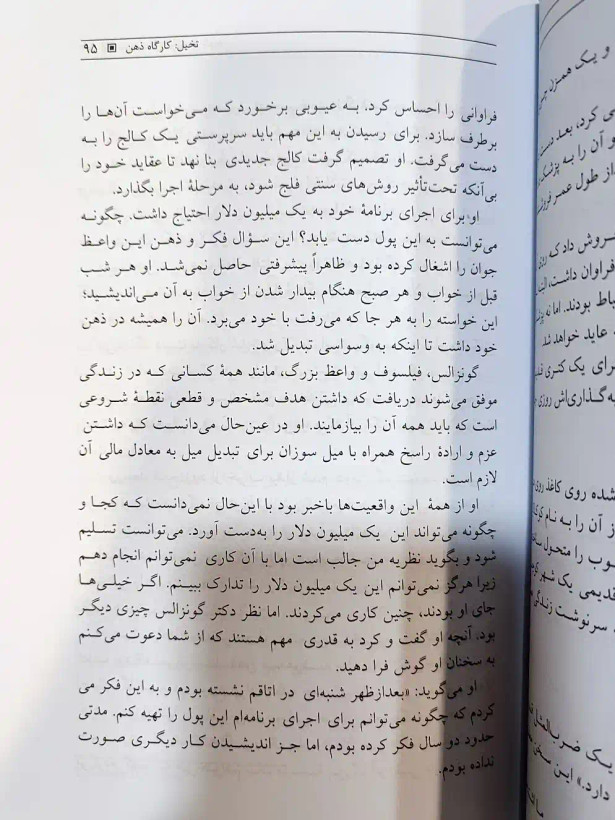 تخیل: کارگاه ذهن ▣ ۹۵
فراوانی را احساس کرد. به عیوبی برخورد که می‌خواست آن‌ها را
برطرف سازد. برای رسیدن به این مهم باید سرپرستی یک کالج را به
دست می‌گرفت. او تصمیم گرفت کالج جدیدی بنا نهد تا عقاید خود را
بی‌آنکه تحت‌تأثیر روش‌های سنتی فلج شود، به مرحلهٔ اجرا بگذارد.
او برای اجرای برنامهٔ خود به یک میلیون دلار احتیاج داشت. چگونه
می‌توانست به این پول دست یابد؟ این سؤال فکر و ذهن این واعظ
جوان را اشغال کرده بود و ظاهراً پیشرفتی حاصل نمی‌شد. او هر شب
قبل از خواب و هر صبح هنگام بیدار شدن از خواب به آن می‌اندیشید؛
این خواسته را به هر جا که می‌رفت با خود می‌برد. آن را همیشه در ذهن
خود داشت تا اینکه به وسواسی تبدیل شد.
گونزالس، فیلسوف و واعظ بزرگ، مانند همهٔ کسانی که در زندگی
موفق می‌شوند دریافت که داشتن هدف مشخص و قطعی نقطهٔ شروعی
است که باید همه آن را بیازمایند. او در عین‌حال می‌دانست که داشتن
عزم و ارادهٔ راسخ همراه با میل سوزان برای تبدیل میل به معادل مالی آن
لازم است.
او از همهٔ این واقعیت‌ها باخبر بود با این‌حال نمی‌دانست که کجا و
چگونه می‌تواند این یک میلیون دلار را به‌دست آورد. می‌توانست تسلیم
شود و بگوید نظریه من جالب است اما با آن کاری نمی‌توانم انجام دهم
زیرا هرگز نمی‌توانم این یک میلیون دلار را تدارک ببینم. اگر خیلی‌ها
جای او بودند، چنین کاری می‌کردند. اما نظر دکتر گونزالس چیزی دیگر
بود. آنچه او گفت و کرد به قدری مهم هستند که از شما دعوت می‌کنم
به سخنان او گوش فرا دهید.
او می‌گوید: «بعدازظهر شنبه‌ای در اتاقم نشسته بودم و به این فکر می
کردم که چگونه می‌توانم برای اجرای برنامه‌ام این پول را تهیه کنم. مدتی
حدود دو سال فکر کرده بودم، اما جز اندیشیدن کار دیگری صورت
نداده بودم.
و یک همزن
ی کرد، بعد
و آن را به پزشک
از طول عمر
روش داد که
فراوان داشت،
باط بودند. اما
عاید خواهد شد
رای یک کتری
به‌گذاری‌اش روزی
شده روی کاغذ روی
از آن را به نام
وب را متحول
قدیمی یک شهر
سرنوشت زندگی
یک ضرب‌المثل
دارد.» این سخن